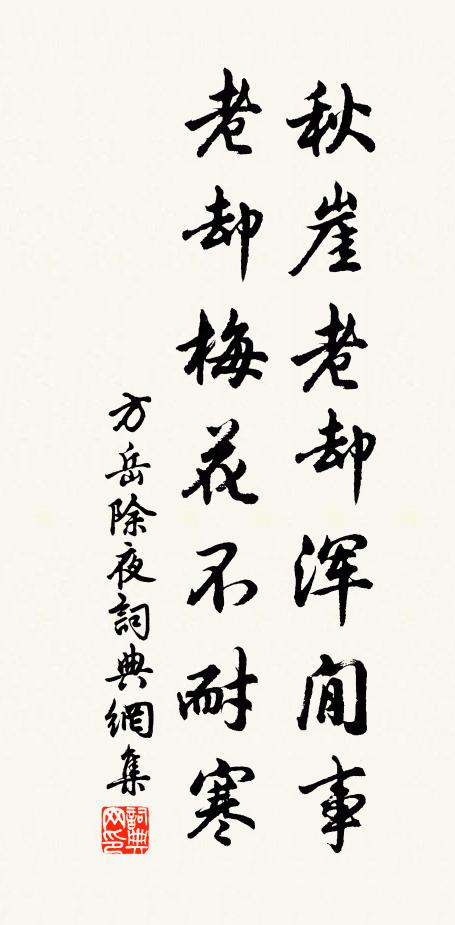 秋崖老却浑閒事
老却梅花不耐寒
方岳除夜詞典網集
詞典网印